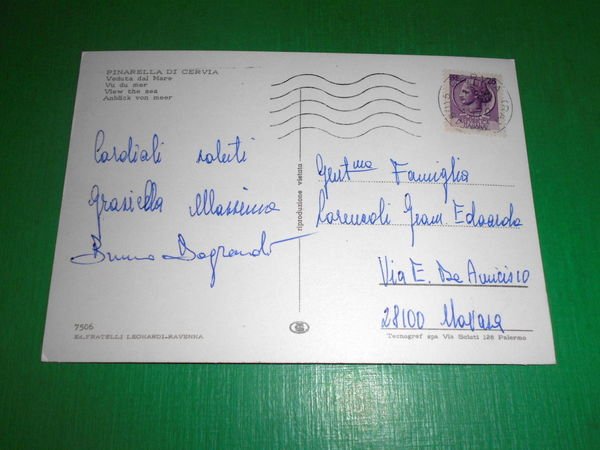 PINARELLA DI CERVIA
Veduta dal Mare
Vu du mer
View the sea
Anblick von meer
Cordiali saluti
Graziella Massimo
Bruno
riproduzione vietata
Gent.ma Famiglia
Gian. Edoardo
Via E. De Amicis 10
28100 Novara
7506
Ed. FRATELLI LEONARDI-RAVENNA
Tecnograf spa Via Sciuti 128 Palermo